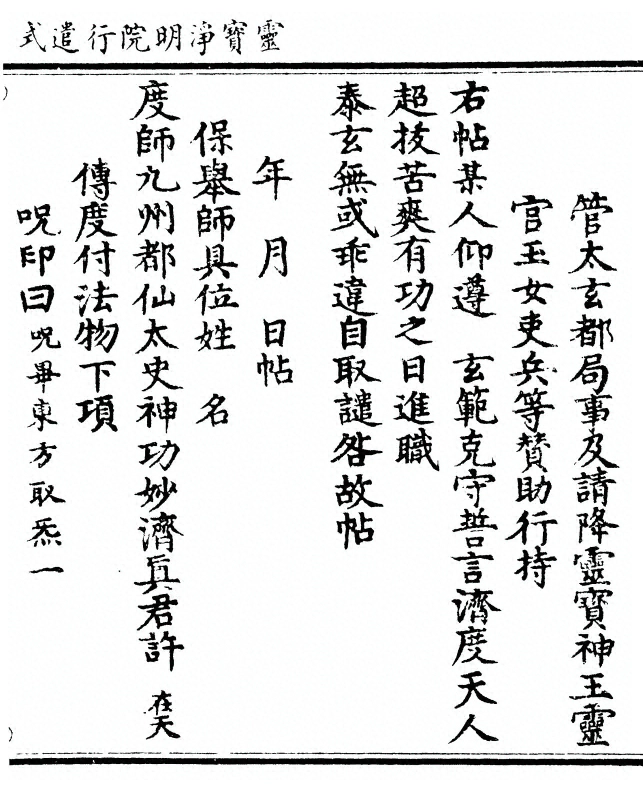 靈寶淨明院行遣式
管太玄都局事及請降靈寶神王靈
官玉女吏兵等贊助行持
右帖某人仰遵　玄範克守誓言濟度天人
超拔苦爽有功之日進職
泰玄無或乖違自取譴咎故帖
年　月　日帖
保舉師具位姓　名
度師九州都仙太史神功妙濟眞君許　在天
傳度付法物下項
呪印曰呪畢東方取炁一